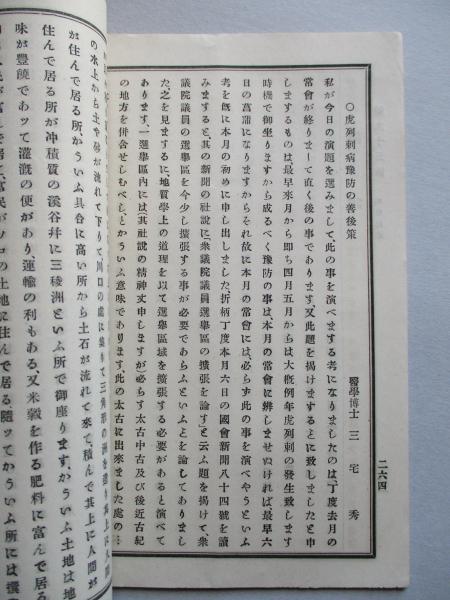 二六四
○虎列刺病豫防の善後策
醫學博士 三宅秀
私が今日の演題を選みまして此の事を演べまする考になりましたのは、丁度去月の
常會が終りまして直く後の事であります、又此題を掲けまするとに致しましたと申
しまするものは、最早來月から即ち四月五月からは大概例年虎列刺の發生致します
時機で御坐りますから成るべく豫防の事は、本月の常會に辨しませぬければ、最早六
日の菖蒲になりますからそれ故に本月の常會には、必らず此の事を演べやうといふ
考を既に本月の初めに申し出しました、折柄丁度本月六日の國會新聞八十四號を讀
みますると、其の新聞の社說に、衆議院議員選擧區の擴張を論すと云ふ題を掲けて、衆
議院議員の選擧區を今少し擴張する事が必要であらふといふとを論してありまし
た、之を見まするに、地質學上の道理を以て選擧區域を擴張する必要があると演べて
あります、一選擧區內には、(其社說の精神丈申しますが必らす太古中古及び後近古紀
の地方を併合せしむべし、とかういふ意味であります、此の太古に出來ました處の…
の水上から土や砂が流れて下りて川口の處に集りて三角形の洲を造り其上に人間
が住んで居る所が、かういふ具合に高い所から土石が流れて來て、積んで其上に人間が
住んで居る所が冲積質の溪谷幷に三稜洲といふ所で御座ります、かういふ土地は地
味が豐饒であッて灌漑の便があり、運輸の利もある、又米穀を作る肥料に富んで居る
土地に住んで居る隨ッてかういふ所には